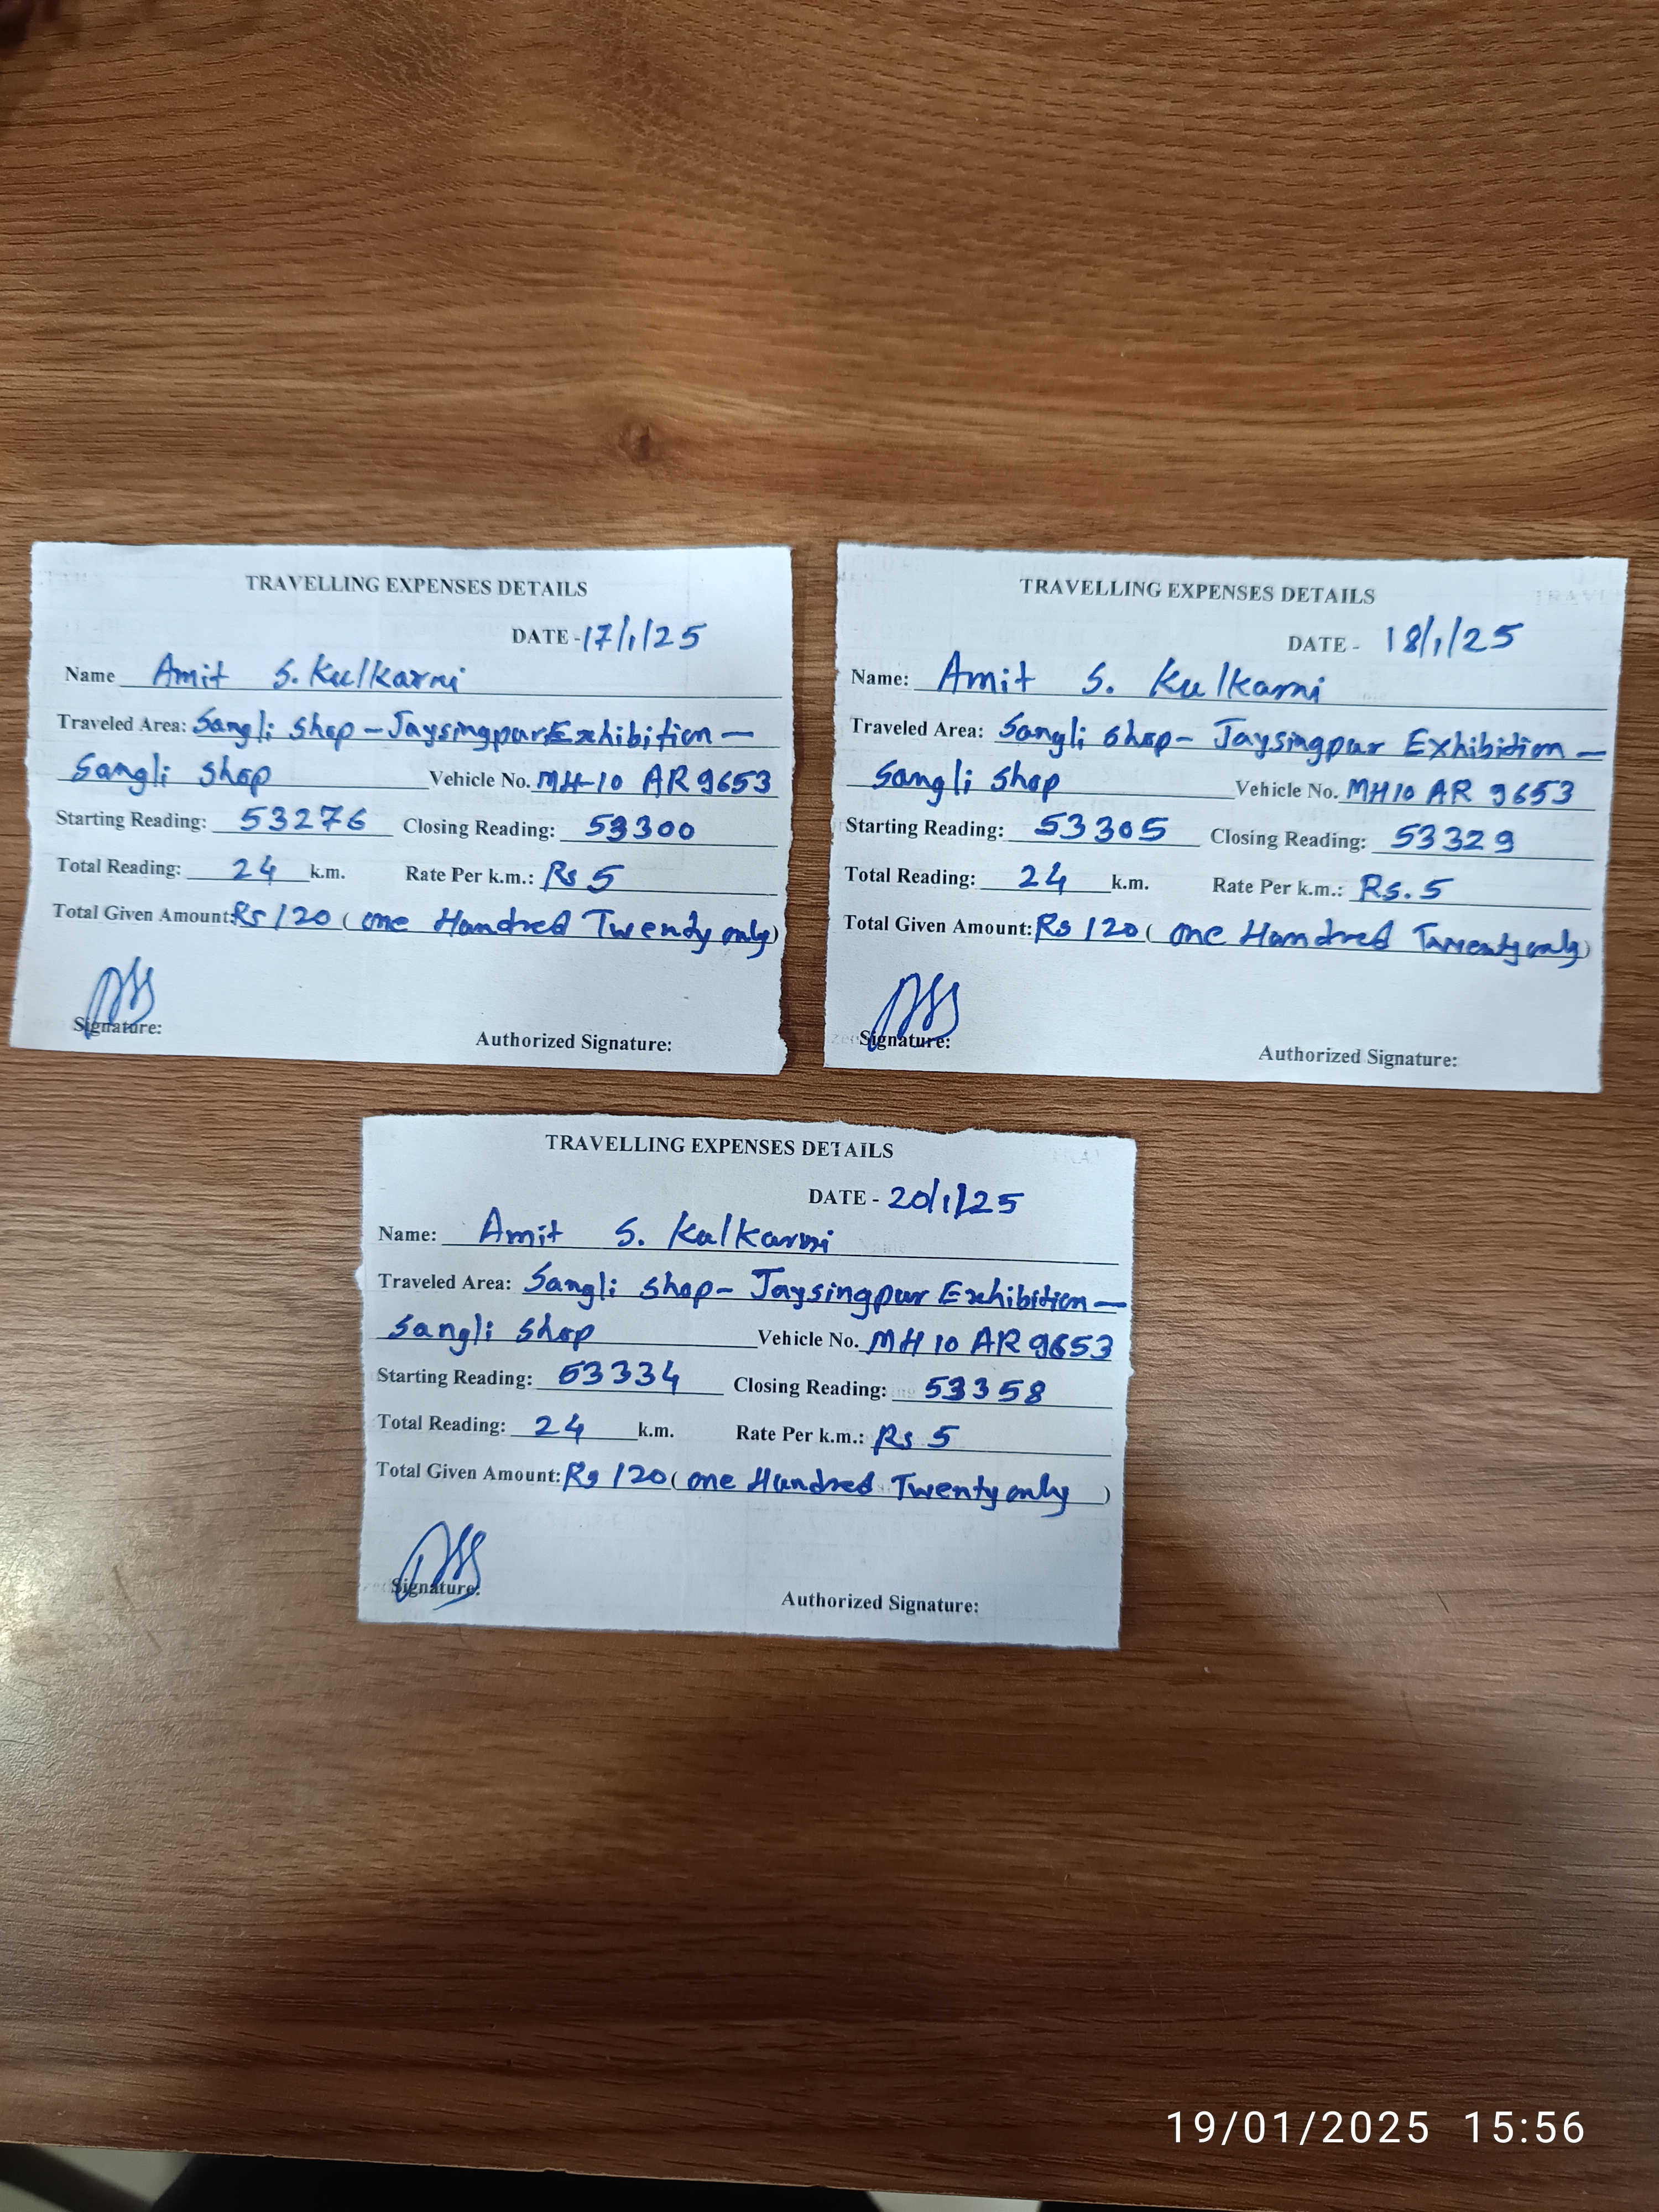 TRAVELLING EXPENSES DETAILS
DATE - 17/1/25
Name Amit S. Kulkarni
Traveled Area: Sangli shop - Jaysingpur Exhibition -
Sangli shop Vehicle No. MH-10 AR 9653
Starting Reading: 53276 Closing Reading: 53300
Total Reading: 24 k.m. Rate Per k.m.: Rs 5
Total Given Amount: Rs 120 ( one Hundred Twenty only)
Signature: Authorized Signature:
TRAVELLING EXPENSES DETAILS
DATE - 18/1/25
Name: Amit S. Kulkarni
Traveled Area: Sangli shop - Jaysingpur Exhibition -
Sangli shop Vehicle No. MH10 AR 9653
Starting Reading: 53305 Closing Reading: 53329
Total Reading: 24 k.m. Rate Per k.m.: Rs. 5
Total Given Amount: Rs 120 ( one Hundred Twenty only)
Signature: Authorized Signature:
TRAVELLING EXPENSES DETAILS
DATE - 20/1/25
Name: Amit S. Kulkarni
Traveled Area: Sangli shop - Jaysingpur Exhibition -
Sangli shop Vehicle No. MH 10 AR 9653
Starting Reading: 53334 Closing Reading: 53358
Total Reading: 24 k.m. Rate Per k.m.: Rs 5
Total Given Amount: Rs 120 ( one Hundred Twenty only )
Signature: Authorized Signature:
19/01/2025 15:56